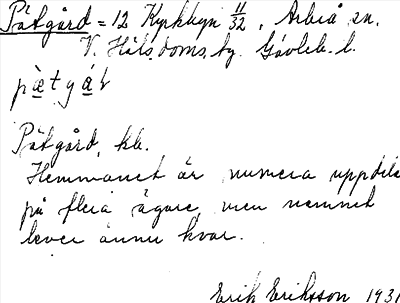 Påtgård = 12 Kyrkbyn 11/32, Arbrå sn.
V. Häls. doms. tg. Gävleb. l.
pàtgáɽ
Påtgård, kb.
Hemmanet är numera uppdela
på flera ägare, men namnet
lever ännu kvar.
Erik Eriksson 193